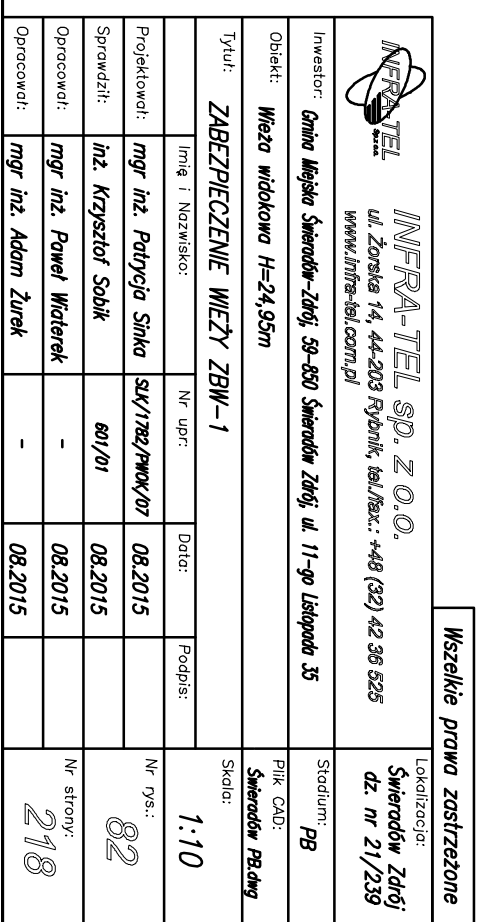 Wszelkie prawa zastrzeżone
INFRA-TEL
Sp.z o.o.
INFRA-TEL sp. z o.o.
ul. Żorska 14, 44-203 Rybnik, tel./fax.: +48 (32) 42 36 525
www.infra-tel.com.pl
Lokalizacja:
Świeradów Zdrój
dz. nr 21/239
Inwestor: Gmina Miejska Świeradów-Zdrój, 59-850 Świeradów Zdrój, ul. 11-go Listopada 35
Stadium: PB
Obiekt: Wieża widokowa H=24,95m
Plik CAD:
Świeradów PB.dwg
Tytuł: ZABEZPIECZENIE WIEŻY ZBW-1
Skala:
1:10
Imię i Nazwisko: Nr upr: Data: Podpis:
Projektował: mgr inż. Patrycja Sinka SLK/1782/PWOK/07 08.2015
Nr rys.:
82
Sprawdził: inż. Krzysztof Sobik 601/01 08.2015
Opracował: mgr inż. Paweł Wiaterek - 08.2015
Nr strony:
218
Opracował: mgr inż. Adam Żurek - 08.2015